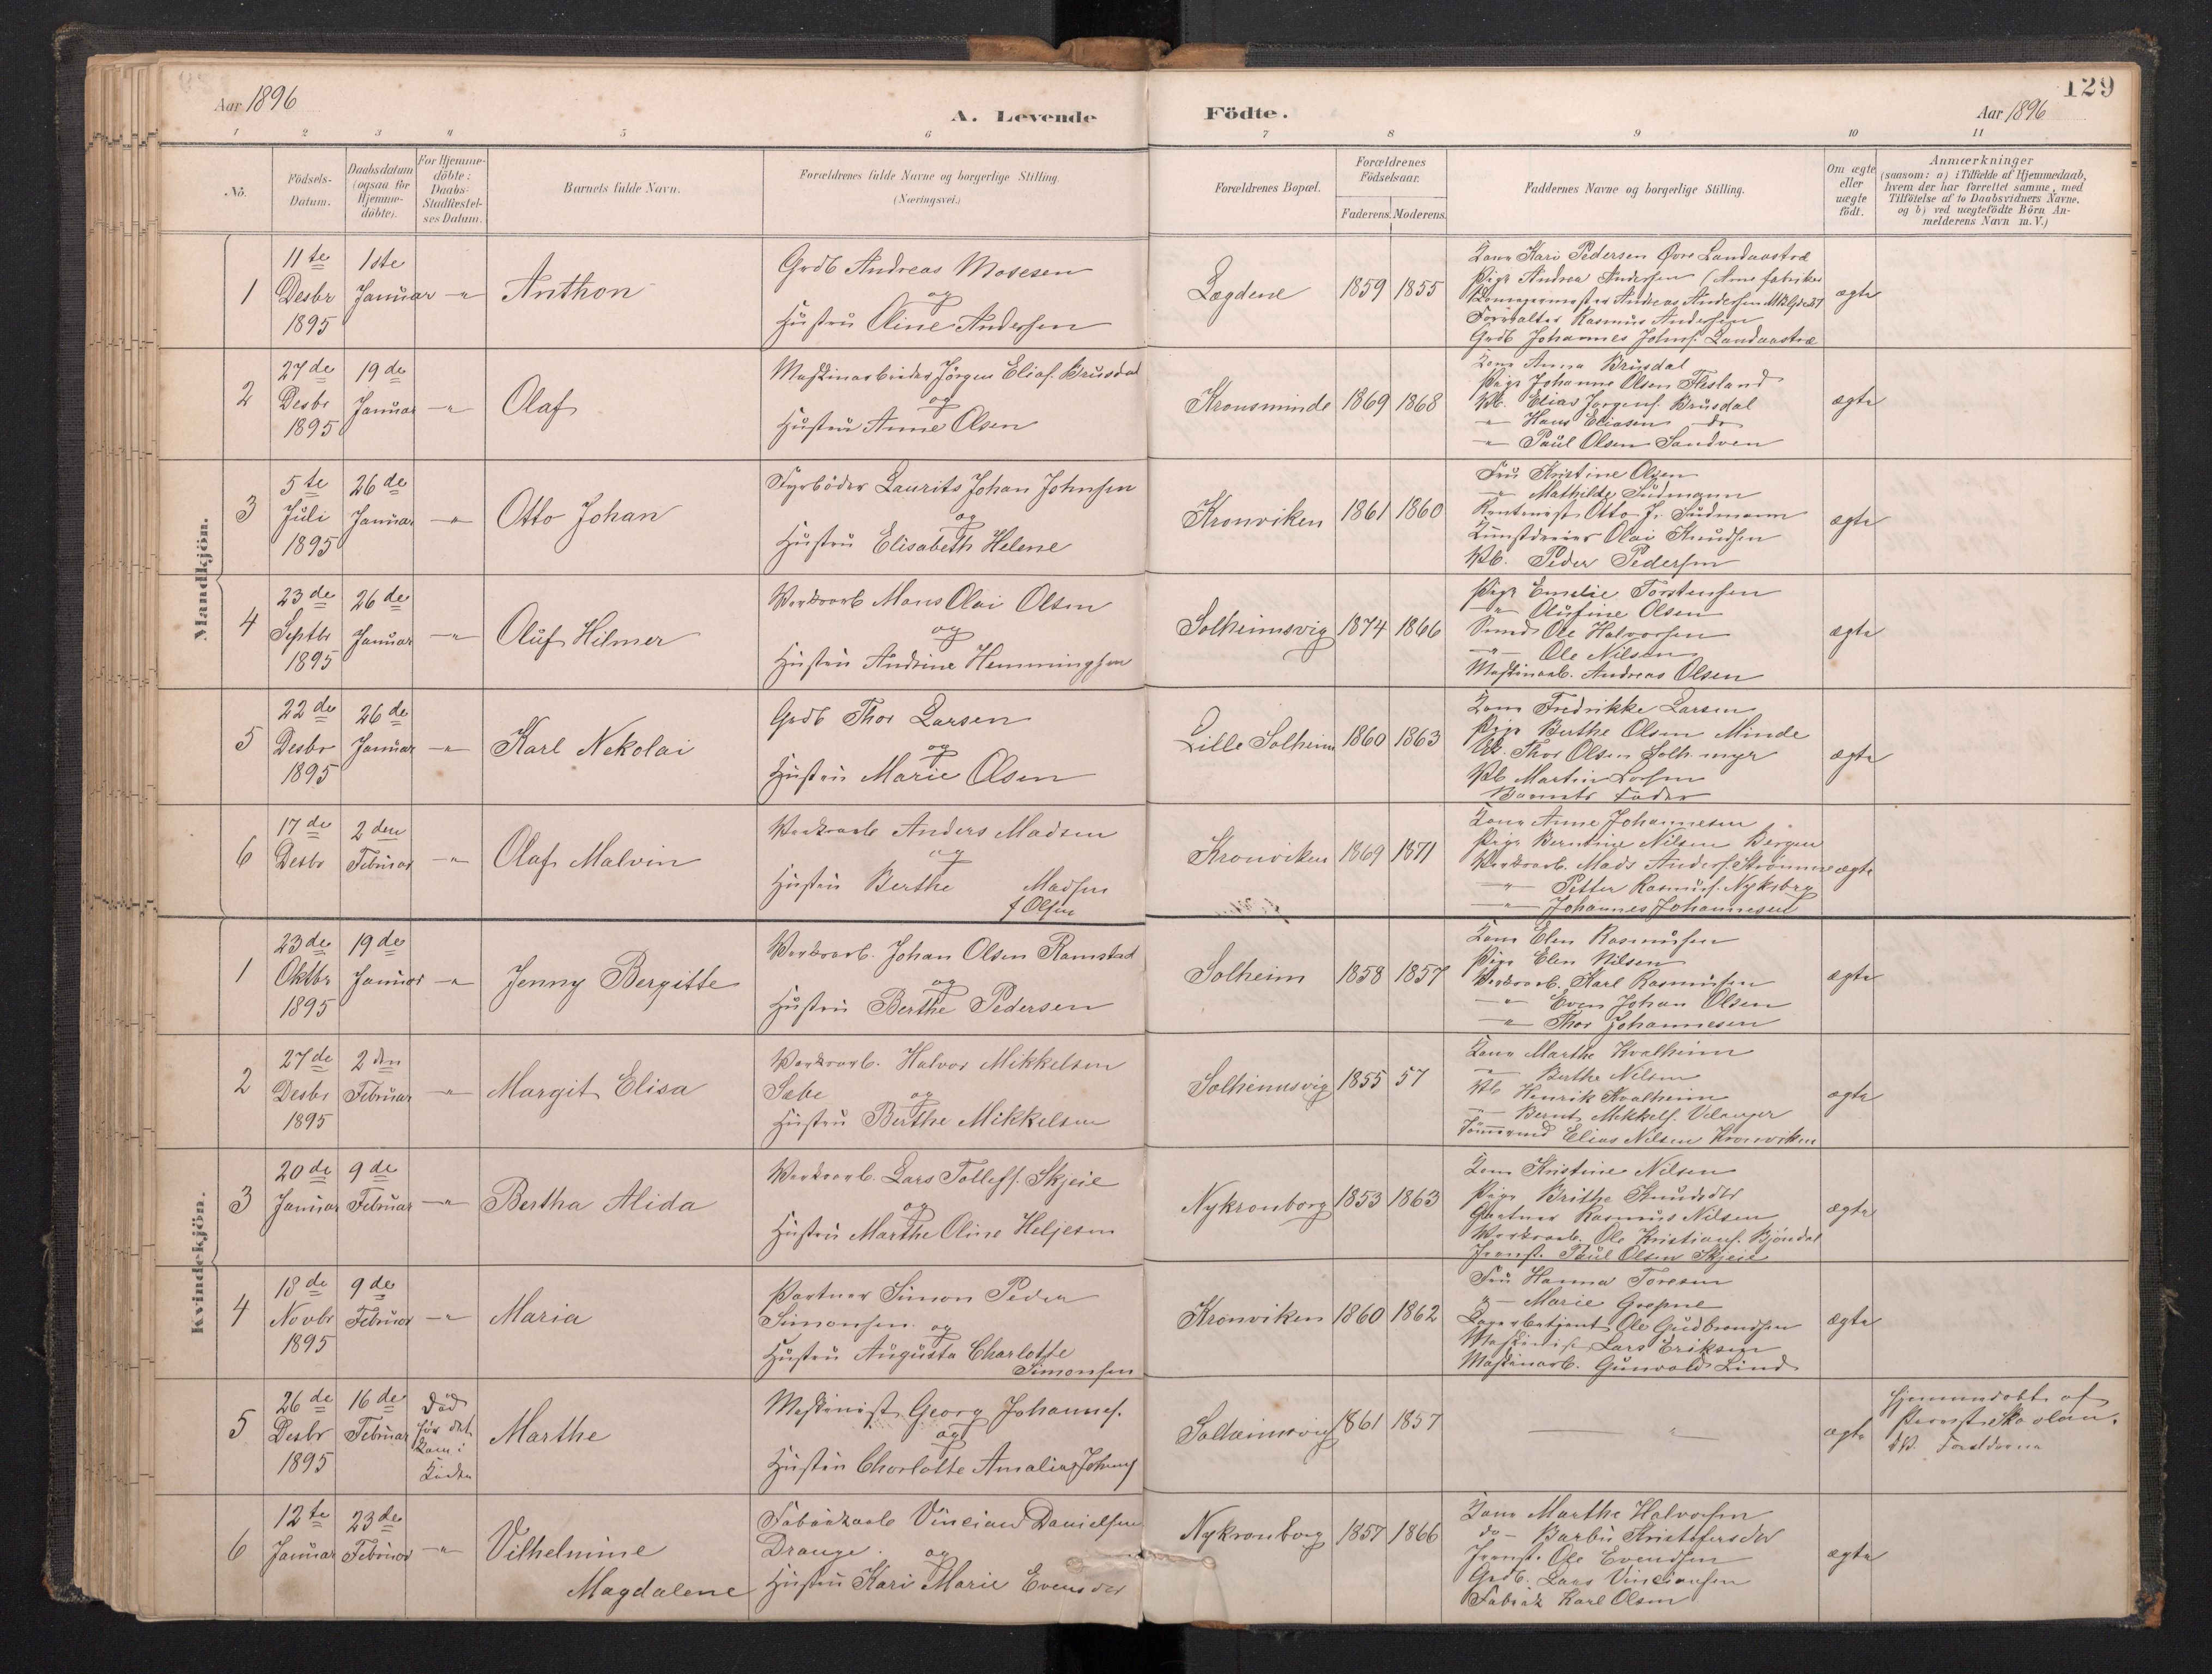 129
Aar 1896
A. Levende Födte.
Aar 1896
1 2 3 4 5 6 7 8 9 10 11
No.
Födsels-Datum.
Daabsdatum (ogsaa for Hjemme-döbte).
For Hjemme-döbte: Daabs-Stadfæstel-ses Datum.
Barnets fulde Navn.
Forældrenes fulde Navne og borgerlige Stilling. (Næringsvei.)
Forældrenes Bopæl.
Forældrenes Födselsaar.
Faderens. Moderens.
Faddernes Navne og borgerlige Stilling.
Om ægte eller uægte födt.
Anmærkninger
(saasom: a) i Tilfælde af Hjemmedaab,
hvem der har forrettet samme, med
Tilföielse af to Daabsvidners Navne,
og b) ved uægtefödte Börn An-
melderens Navn m. V.)
Mandkjön.
1
11te Desbr 1895
1ste Januar
Anthon
Grdb Andreas Mosesen
og
Hustru Oline Andersen
Lægdene
1859 1855
Kone Kari Pedersen Øvre Landaastræ
Pige Andrea Andersen (Arne fabriker
Andreas Andersen
Forvalter Rasmus Andersen
Grdb Johannes Johns. Landaastræ
ægte
2
27de Desbr 1895
19de Januar
Olaf
Maskinarbeider Jörgen Elias. Brusdal
og
Hustru Anne Olsen
Kronsminde
1869 1868
Kone Anna Brusdal
Pige Johanne Olsen Flesland
Pb. Elias Jørgens. Brusdal
-"- Hans Eliasen do
-"- Paul Olsen Sandven
ægte
3
5te Juli 1895
26de Januar
Otto Johan
Fyrböder Laurits Johan Johnsen
og
Hustru Elisabeth Helene
Kronviken
1861 1860
Fru Kristine Olsen
-"- Mathilde Sudmann
Otto J. Sudmann
Kunstdreier Olai Knudsen
Pb. Peder Pedersen
ægte
4
23de Septbr 1895
26de Januar
Oluf Hilmer
Værksarb Mons Olai Olsen
og
Hustru Andrine Hemmingsen
Solheimsvig
1874 1866
Pige Emelie Torstensen
-"- Olufine Olsen
Ole Halvorsen
-"- Ole Nilsen
Maskinarb. Andreas Olsen
ægte
5
22de Desbr 1895
26de Januar
Karl Nekolai
Grdb Thor Larsen
og
Hustru Marie Olsen
Lille Solheim
1860 1863
Kone Fredrikke Larsen
Pige Berthe Olsen Minde
Thor Olsen Solh. myr
Pb Martin Larsen
Barnets Fader
ægte
6
17de Desbr
2den Februar
Olaf Malvin
Værksarb Anders Madsen
og
Hustru Berthe Madsen
f Olsen
Kronviken
1869 1871
Kone Anne Johannesen
Pige Berntine Nilsen Bergen
Værksarb. Mads Anders. Strømme
-"- Petter Rasmus. Nykrbrg
-"- Johannes Johannesen
ægte
Kvindekjön.
1
23de Oktbr 1895
19de Januar
Jenny Bergitte
Værksarb. Johan Olsen Ramstad
og
Hustru Berthe Pedersen
Solheim
1858 1857
Kone Elen Rasmussen
Pige Elen Nilsen
Værksarb. Karl Rasmussen
-"- Even Johan Olsen
-"- Thor Johannesen
ægte
2
27de Desbr 1895
2den Februar
Margit Elisa
Værksarb. Halvor Mikkelsen
Sæbe
og
Hustru Berthe Mikkelsen
Solheimsvig
1855 57
Kone Marthe Kvalheim
-"- Berthe Nilsen
Pb Henrik Kvalheim
-"- Bernt Mikkels.
Tömmermd Elias Nilsen Kronviken
ægte
3
20de Januar
9de Februar
Bertha Alida
Værksarb. Lars Tollefs. Skjeie
og
Hustru Marthe Oline Heljesen
Nykronborg
1853 1863
Kone Kristine Nilsen
Pige Brithe Knudsdtr
Gartner Rasmus Nilsen
Værksarb. Ole Kristians. Bjöndal
Paul Olsen Skjeie
ægte
4
18de Novbr 1895
9de Februar
Maria
Simon Peder
Simonsen og
Hustru Augusta Charlotte
Simonsen
Kronviken
1860 1862
Fru Hanna Toresen
"- Marie
Lagerbetjent Ole Gudbrandsen
Maskinist Lars Eriksen
Maskinarb. Gunvald Lind
ægte
5
26de Desbr 1895
16de Februar
Död för det kom i Kirke
Marthe
Maskinist Georg Johannes.
og
Hustru Charlotte Amalia Johans
Solheimsvig
1861 1857
-"-
ægte
Hjemmedøbt af
6
12te Januar
23de Februar
Vilhelmine
Magdalene
Fabrikarb Vincian Danielsen
Drange. og
Hustru Kari Marie Evensdtr
Nykronborg
1857 1866
Kone Marthe Halvorsen
do - Barbu Kristofersdtr
Ole Evendsen
Grdb. Lars Vinciansen
Fabrik Karl Olsen
ægte